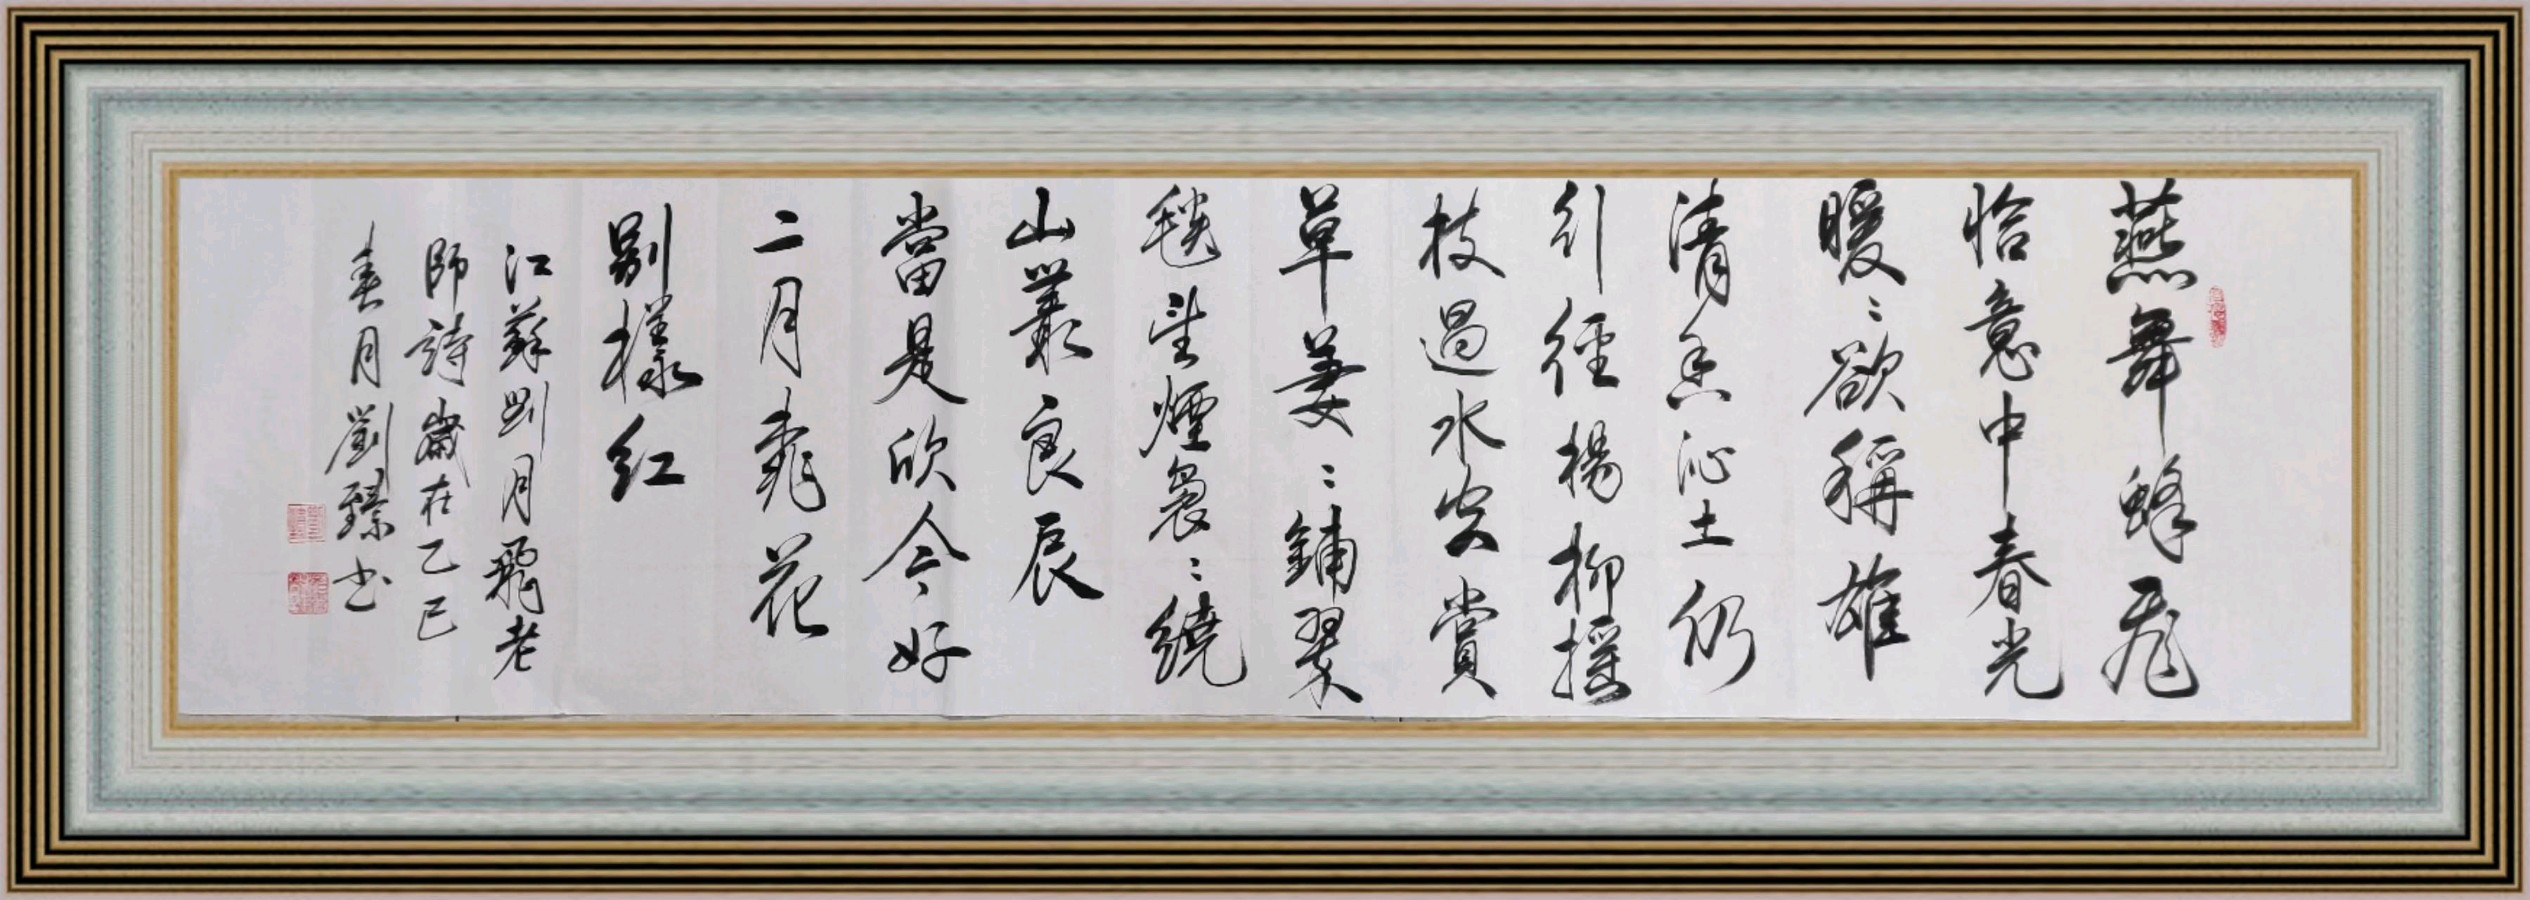 燕舞蜂飛
恰意中春光
暖〻欲稱雄
清香沁土仍
引徑楊柳搖
枝過水賞
草萋〻鋪翠
毯望煙裊〻繞
山叢良辰
當是欣今好
二月桃花
別樣紅
江蘇月飛老
師詩歲在乙巳
春月劉臻书